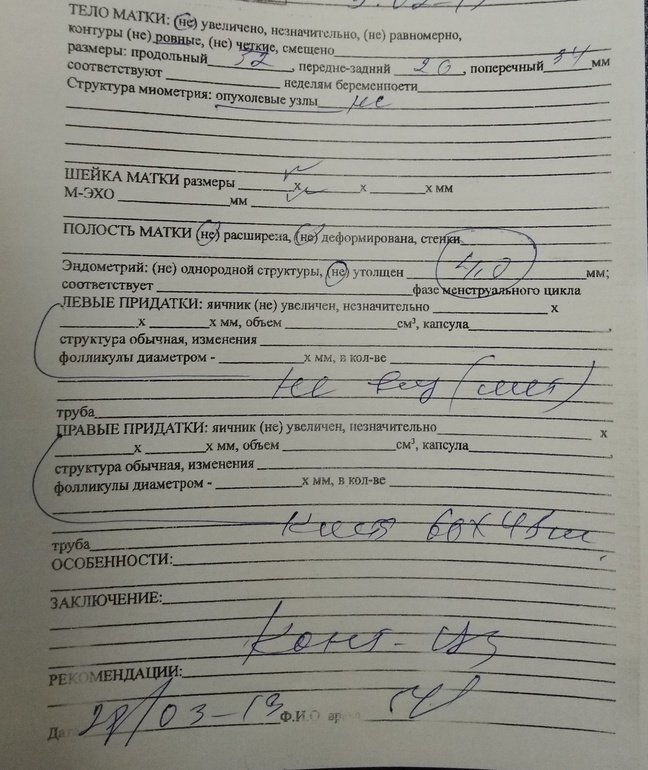 ТЕЛО МАТКИ: (не) увеличено, незначительно, (не) равномерно,
контуры (не) ровные, (не) четкие, смещено
размеры: продольный 32, передне-задний 26, поперечный 34 мм
соответствуют неделям беременности
Структура миометрия: опухолевые узлы не
ШЕЙКА МАТКИ размеры х х х мм
М-ЭХО мм
ПОЛОСТЬ МАТКИ (не) расширена, (не) деформирована, стенки
Эндометрий: (не) однородной структуры, (не) утолщен 4,0 мм;
соответствует фазе менструального цикла
ЛЕВЫЕ ПРИДАТКИ: яичник (не) увеличен, незначительно х
х х мм, объем см³, капсула,
структура обычная, изменения
фолликулы диаметром - х мм, в кол-ве
не
труба
ПРАВЫЕ ПРИДАТКИ: яичник (не) увеличен, незначительно х
х х мм, объем см³, капсула,
структура обычная, изменения
фолликулы диаметром - х мм, в кол-ве
киста
труба
ОСОБЕННОСТИ:
ЗАКЛЮЧЕНИЕ:
Конт-
РЕКОМЕНДАЦИИ:
Ф.И.О